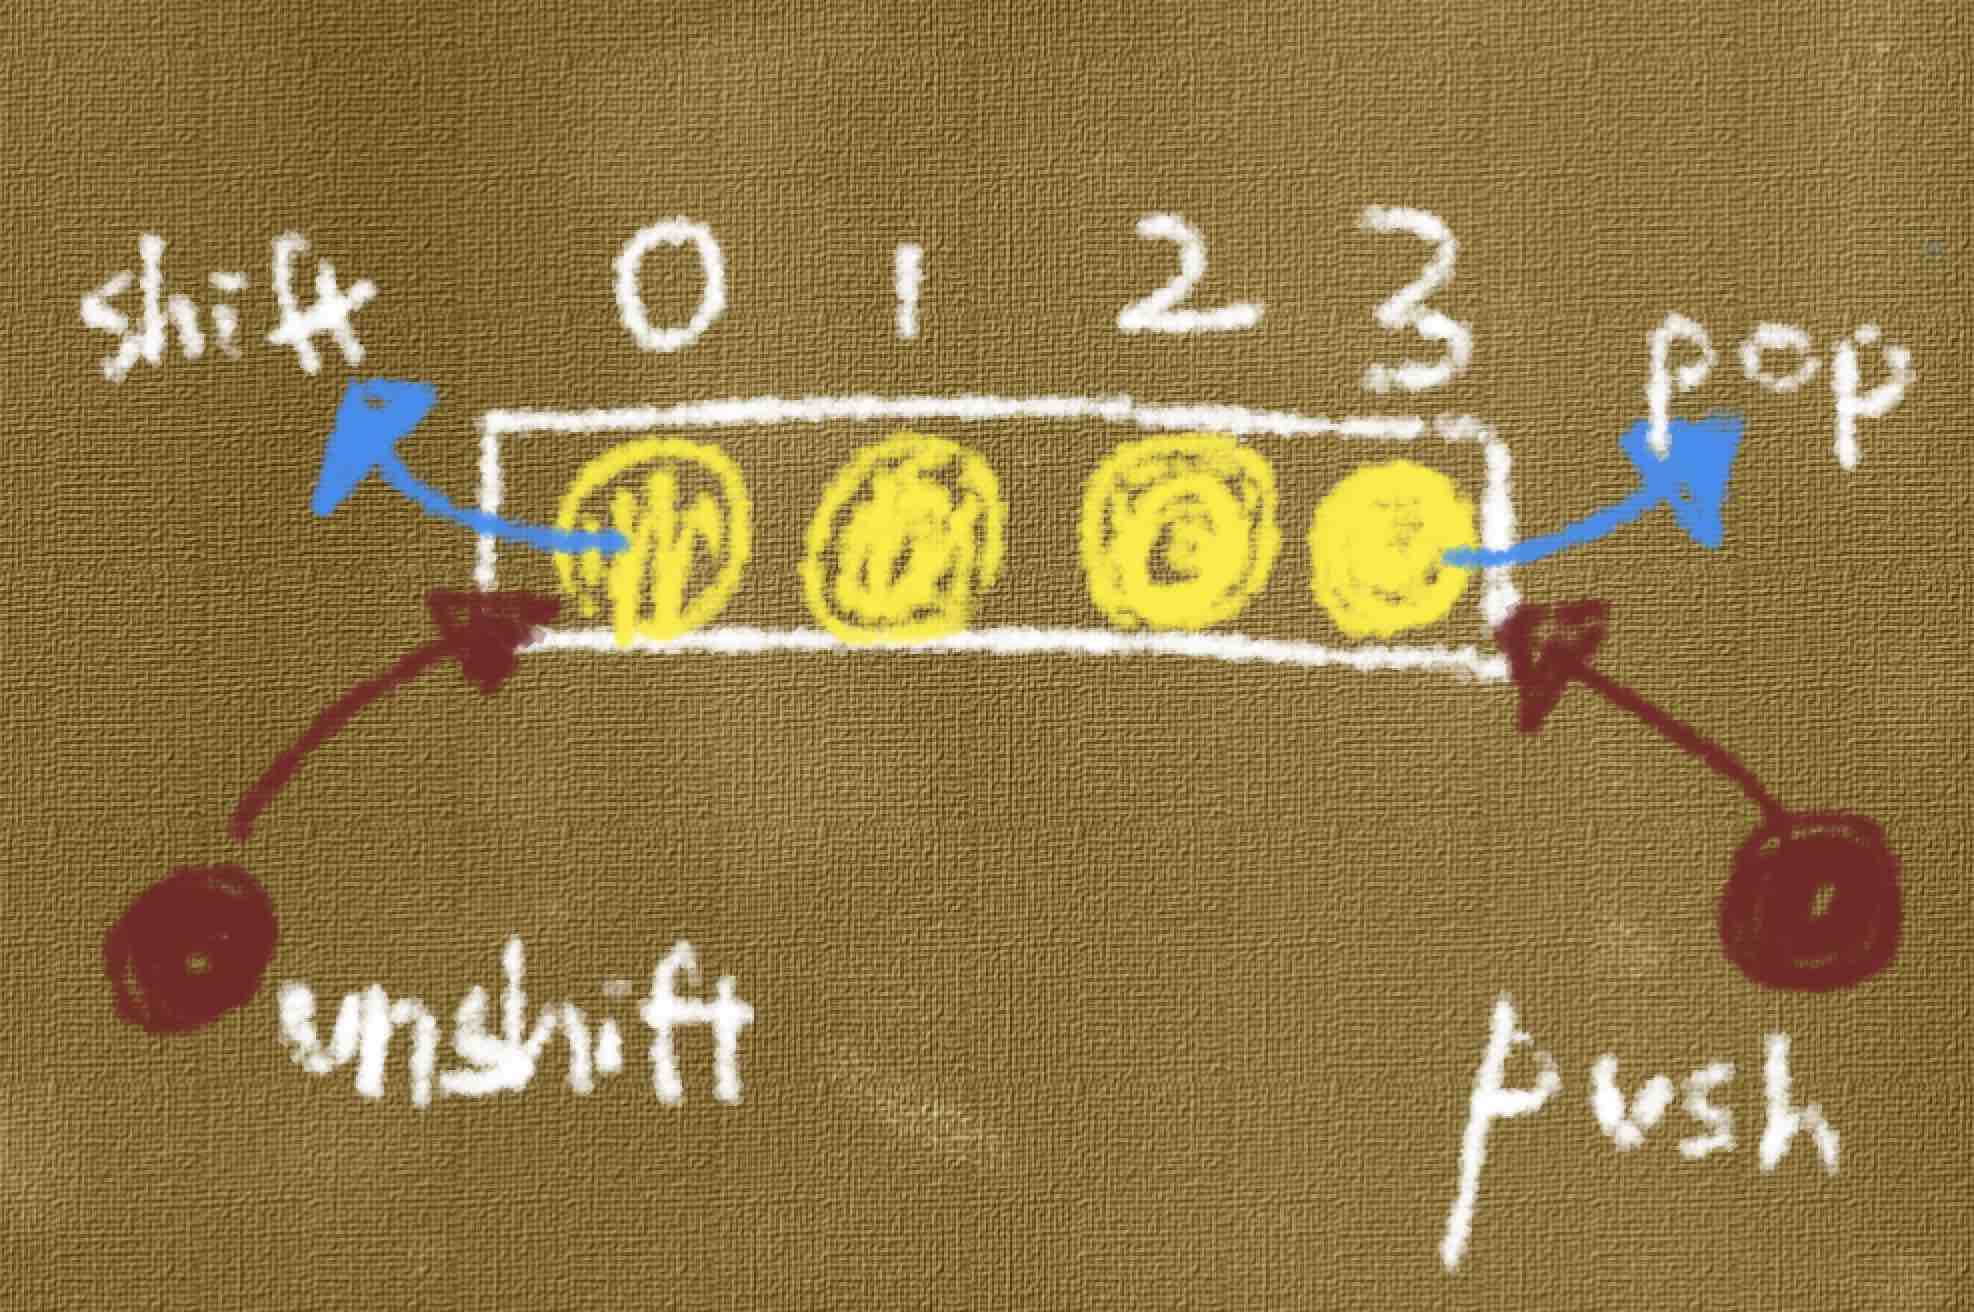 shift 0 1 2 3 pop
unshift push